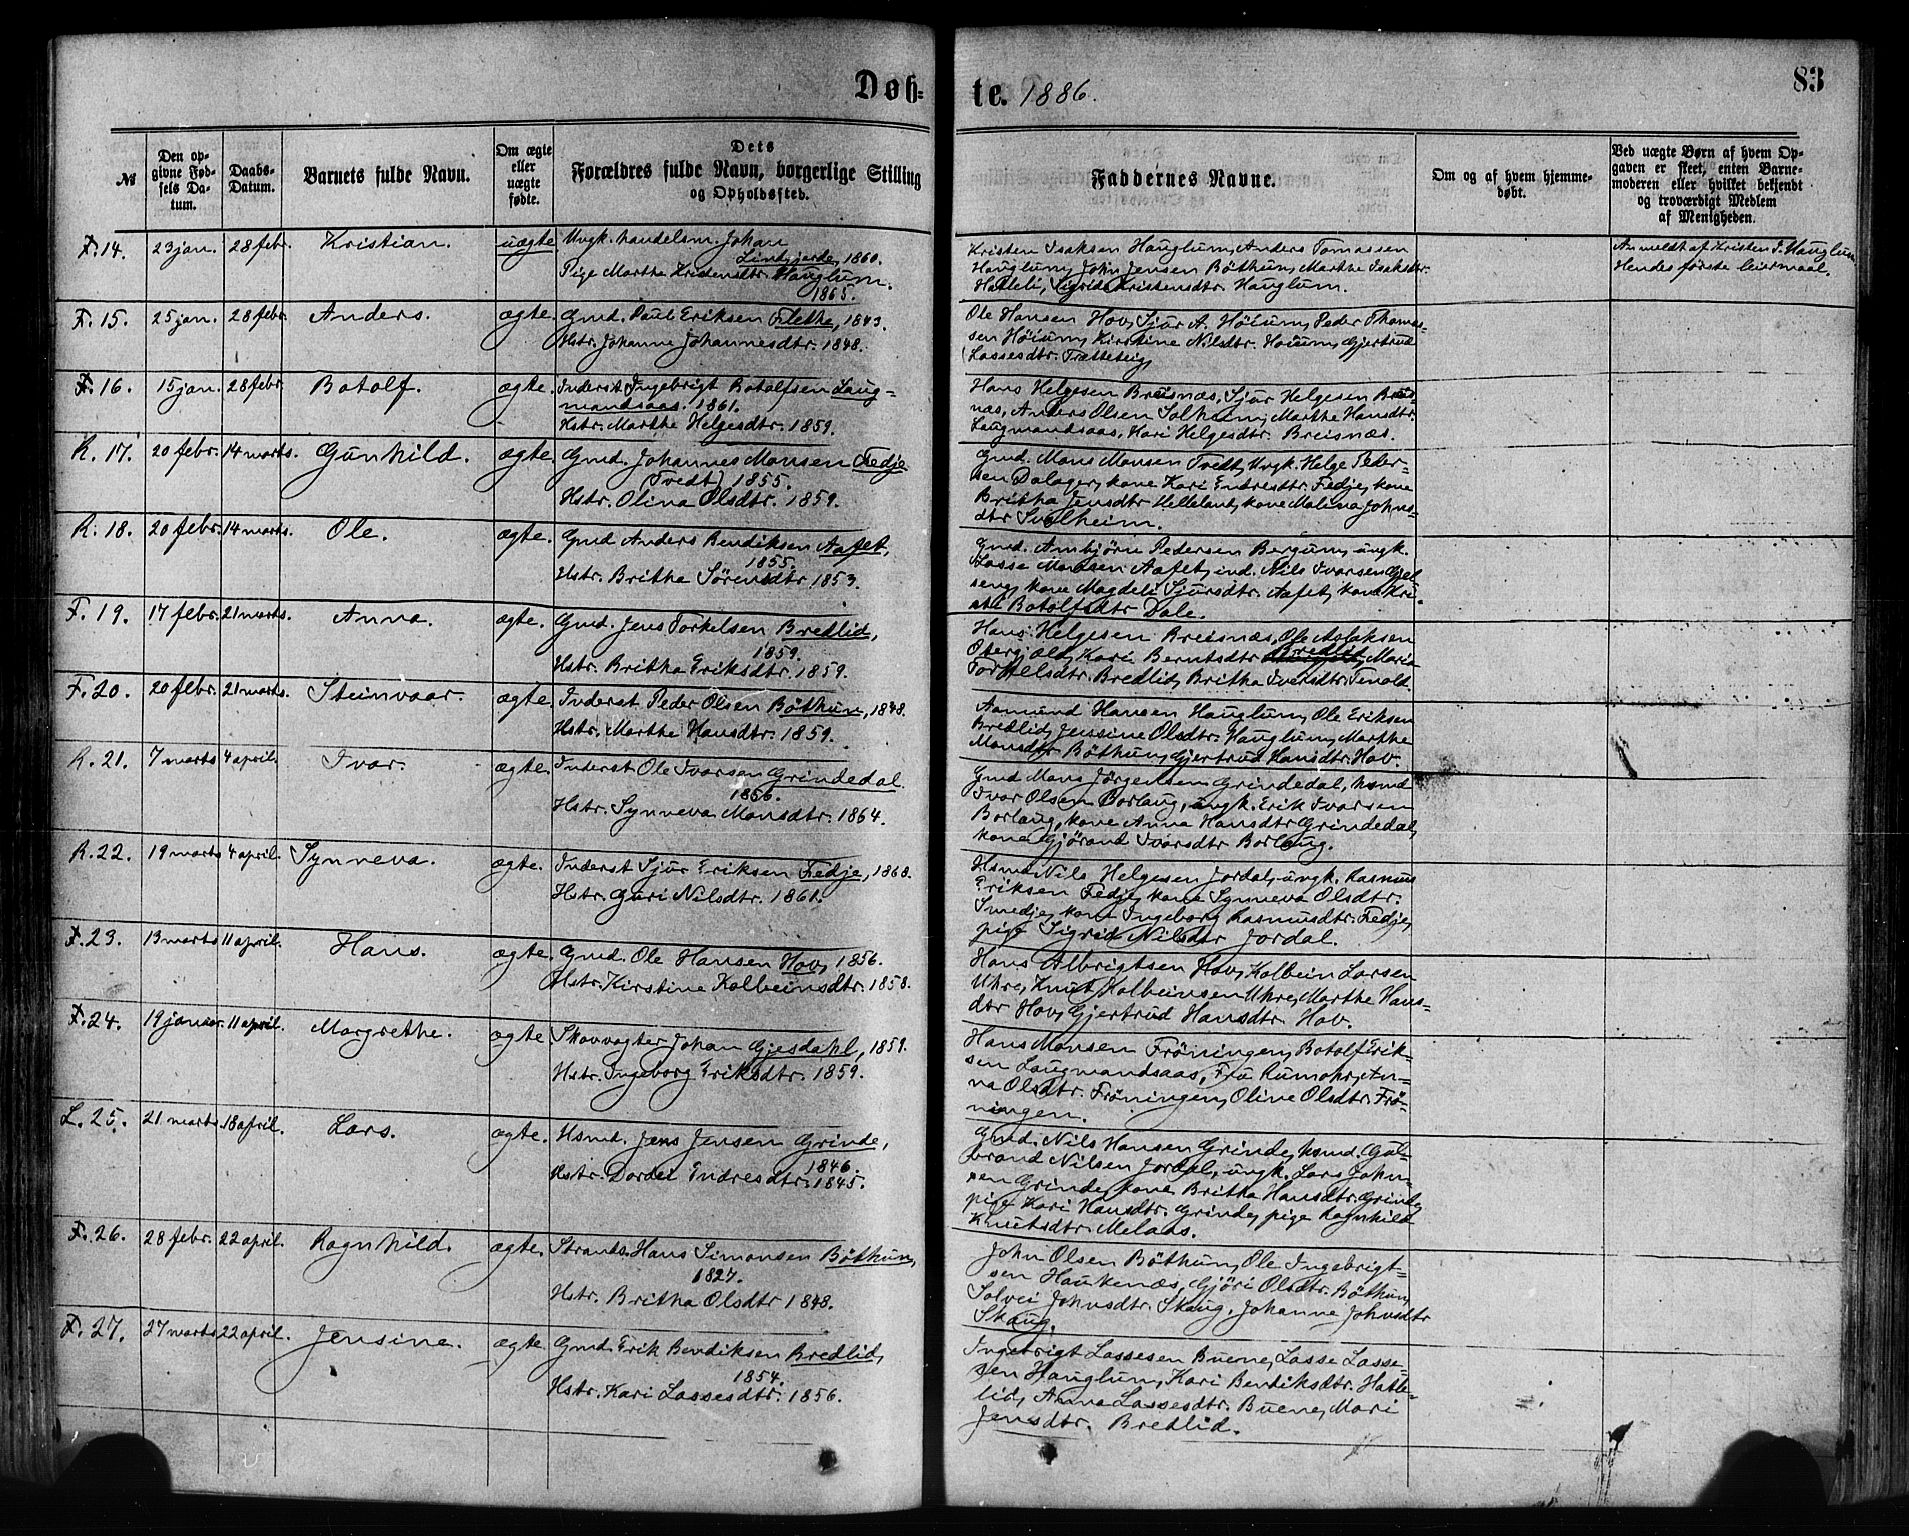 Døb=
te. 1886.
83
№
Den op-
givne Fød-
sels Da-
tum.
Daabs-
Datum.
Barnets fulde Navn.
Om ægte
eller
uægte
fødte.
Dets
Forældres fulde Navn, borgerlige Stilling
og Opholdssted.
Faddernes Navne.
Om og af hvem hjemme-
døbt.
Ved uægte Børn af hvem Op-
gaven er skeet, enten Barne-
moderen eller hvilket bekjendt
og troværdigt Medlem
af Menigheden.
F. 14. 23 jan. 28 febr. Kristian. uægte. Ungk. handelsm. Johan
Lindgjerde, 1860.
Pige Marthe Kristensdtr. Hauglum.
1865.
Kristen Isaksen Hauglum, Anders Tomassen
Hauglum, John Jensen Böthun, Marthe Isaksdtr.
Hatleli, Sigrid Kristensdtr. Hauglum.
Anmeldt af Kristen I. Hauglum.
Hendes første leiermaal.
F. 15. 25 jan. 28 febr. Anders. ægte. Gmd. Paul Eriksen Flethe, 1843.
Hstr. Johanne Johannesdtr. 1848.
Ole Hansen Hov, Sjur A. Höium, Peder Thomas-
sen Höium, Kirstine Nilsdtr. Höium, Gjertrud
Lassesdtr. Trætteteig,
F. 16. 15 jan. 28 febr. Botolf. ægte. Inderst Ingebrigt Botolfsen Laug-
mandsaas. 1861.
Hstr. Marthe Helgesdtr. 1859.
Hans Helgesen Breisnæs, Sjur Helgesen Breis-
næs, Anders Olsen Solheim, Marthe Hansdtr.
Laugmandsaas, Kari Helgesdtr. Breisnæs.
R. 17. 20 febr. 14 marts. Gunhild. ægte. Gmd. Johannes Monsen Fedje
(Tvedt) 1855.
Hstr. Olina Olsdtr. 1859.
Gmd. Mons Monsen Tvedt, Ungk. Helge Peder-
sen Dalager, kone Kari Endresdtr. Fedje, kone
Britha Jensdtr Helleland, kone Malina Johns-
dtr Svalheim.
R. 18. 20 febr. 14 marts. Ole. ægte. Gmd Anders Bendiksen Aafet,
1855.
Hstr. Britha Sörensdtr 1853.
Gmd. Ambjörn Pedersen Bergum, ungk.
Lasse Monsen Aafet, ind. Nils Ivarsen Gjel
seng, kone Magdeli Sjursdtr. Aafet, kone Kri-
sti Botolfsdtr Dale.
F. 19. 17 febr. 21 marts. Anna. ægte. Gmd. Jens Torkelsen Bredlid,
1859.
Hstr. Britha Eriksdtr. 1859.
Hans Helgesen Breisnæs, Ole Aslaksen
Obergjæld, Kari Berntsdtr Bredlid, Mari
Torkelsdtr. Bredlid, Britha Iversdtr. Tenold.
F. 20. 20 febr. 21 marts. Steinvaar. ægte. Inderst Peder Olsen Böthun, 1848.
Hstr. Marthe Hansdtr. 1859.
Aamund Hansen Hauglum, Ole Eriksen
Bredlid, Jensine Olsdtr. Hauglum, Marthe
Monsdtr. Böthun, Gjertrud Hansdtr. Hov.
R. 21. 7 marts 4 april. Ivar. ægte. Inderst Ole Ivarsen Grindedal.
1856.
Hstr. Synneva Monsdtr. 1864.
Gmd Mons Jörgensen Grindedal, hsmd
Ivar Olsen Borlaug, ungk. Erik Ivarsen
Borlaug, kone Anna Hansdtr Grindedal,
kone Gjörand Ivarsdtr Borlaug.
R. 22. 19 marts 4 april. Synneva. ægte. Inderst Sjur Eriksen Fedje, 1860.
Hstr. Guri Nilsdtr. 1861.
Hsmd Nils Helgesen Jordal, ungk. Rasmus
Eriksen Fedje, kone Synneva Olsdtr.
Smedje, kone Ingeborg Rasmusdtr. Fedje,
pige Sigrid Nilsdtr Jordal.
F. 23. 13 marts 11 april. Hans. ægte. Gmd. Ole Hansen Hov, 1856.
Hstr. Kirstine Kolbeinsdtr. 1858.
Hans Albrigtsen Hov, Kolbein Larsen
Uhre, Knut Kolbeinsen Uhre, Marthe Hans-
dtr Hov, Gjertrud Hansdtr. Hov.
F. 24. 19 januar. 11 april. Margrethe. ægte Skovvogter Johan Gjesdahl, 1859.
Hstr. Ingeborg Eriksdtr. 1859.
Hans Monsen Fröningen, Botolf Erik-
sen Laugmandsaas, Fru Rumohr, An-
na Olsdtr. Fröningen, Oline Olsdtr. Frö-
ningen.
L. 25. 21 marts. 18 april. Lars. ægte. Hsmd. Jens Jensen Grinde,
1846.
Hstr. Dordei Endresdtr. 1845.
Gmd. Nils Hansen Grinde, hsmd. Gul-
brand Nilsen Jordal, ungk. Lars John-
sen Grinde, kone Britha Hansdtr. Grinde,
pige Kari Hansdtr. Grinde, pige Ragnhild
Knutsdtr. Melaas.
F. 26. 28 febr. 22 april. Ragnhild. ægte. Strands. Hans Simonsen Böthun,
1827.
Hstr. Britha Olsdtr 1848.
John Olsen Böthun, Ole Ingebrigt-
sen Haukenæs, Gjöri Olsdtr. Böthun,
Solvei Johnsdtr. Skaug, Johanne Johnsdtr
Skaug.
F. 27. 27 marts 22 april. Jensine. ægte Gmd. Erik Bendiksen Bredlid,
1854.
Hstr. Kari Lassesdtr. 1856.
Ingebrigt Lassesen Buene, Lasse Lasse-
sen Hauglum, Kari Bendiksdtr. Hatle-
lid, Anna Lassesdtr. Buene, Mari
Jensdtr. Bredlid.